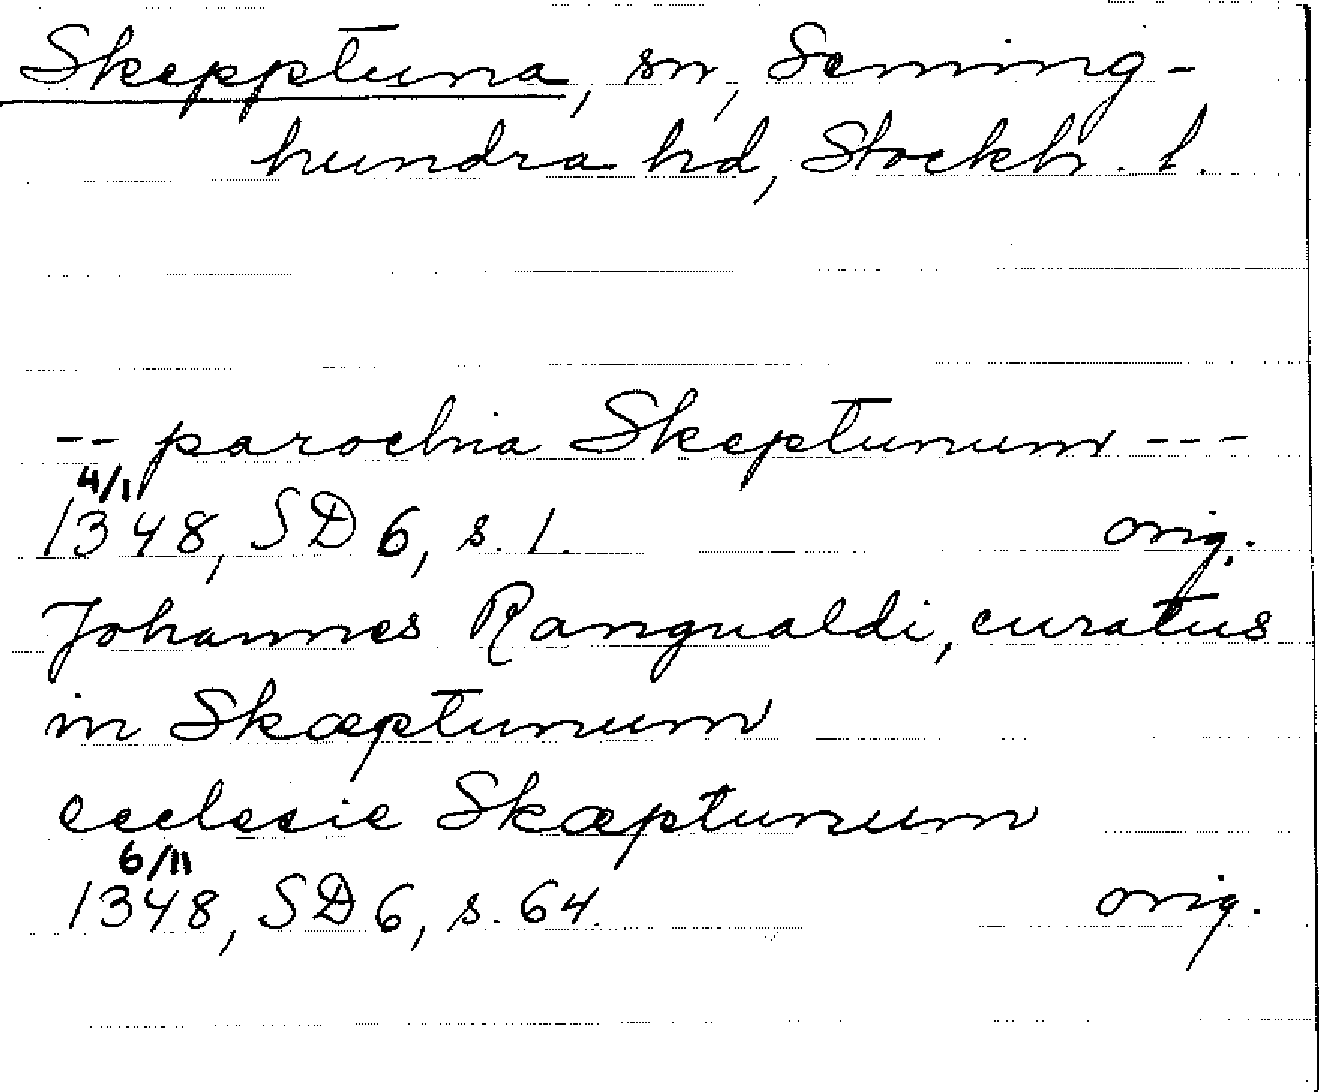 Skepptuna, sn, Seming-
hundra hd, Stockh. l.
-- parochia Skeptunum ---
4/1
1348, SD 6, s. 1. orig.
Johannes Rangualdi, curatus
in Skæptunum
ecclesie Skæptunum
6/11
1348, SD 6, s. 64. orig.